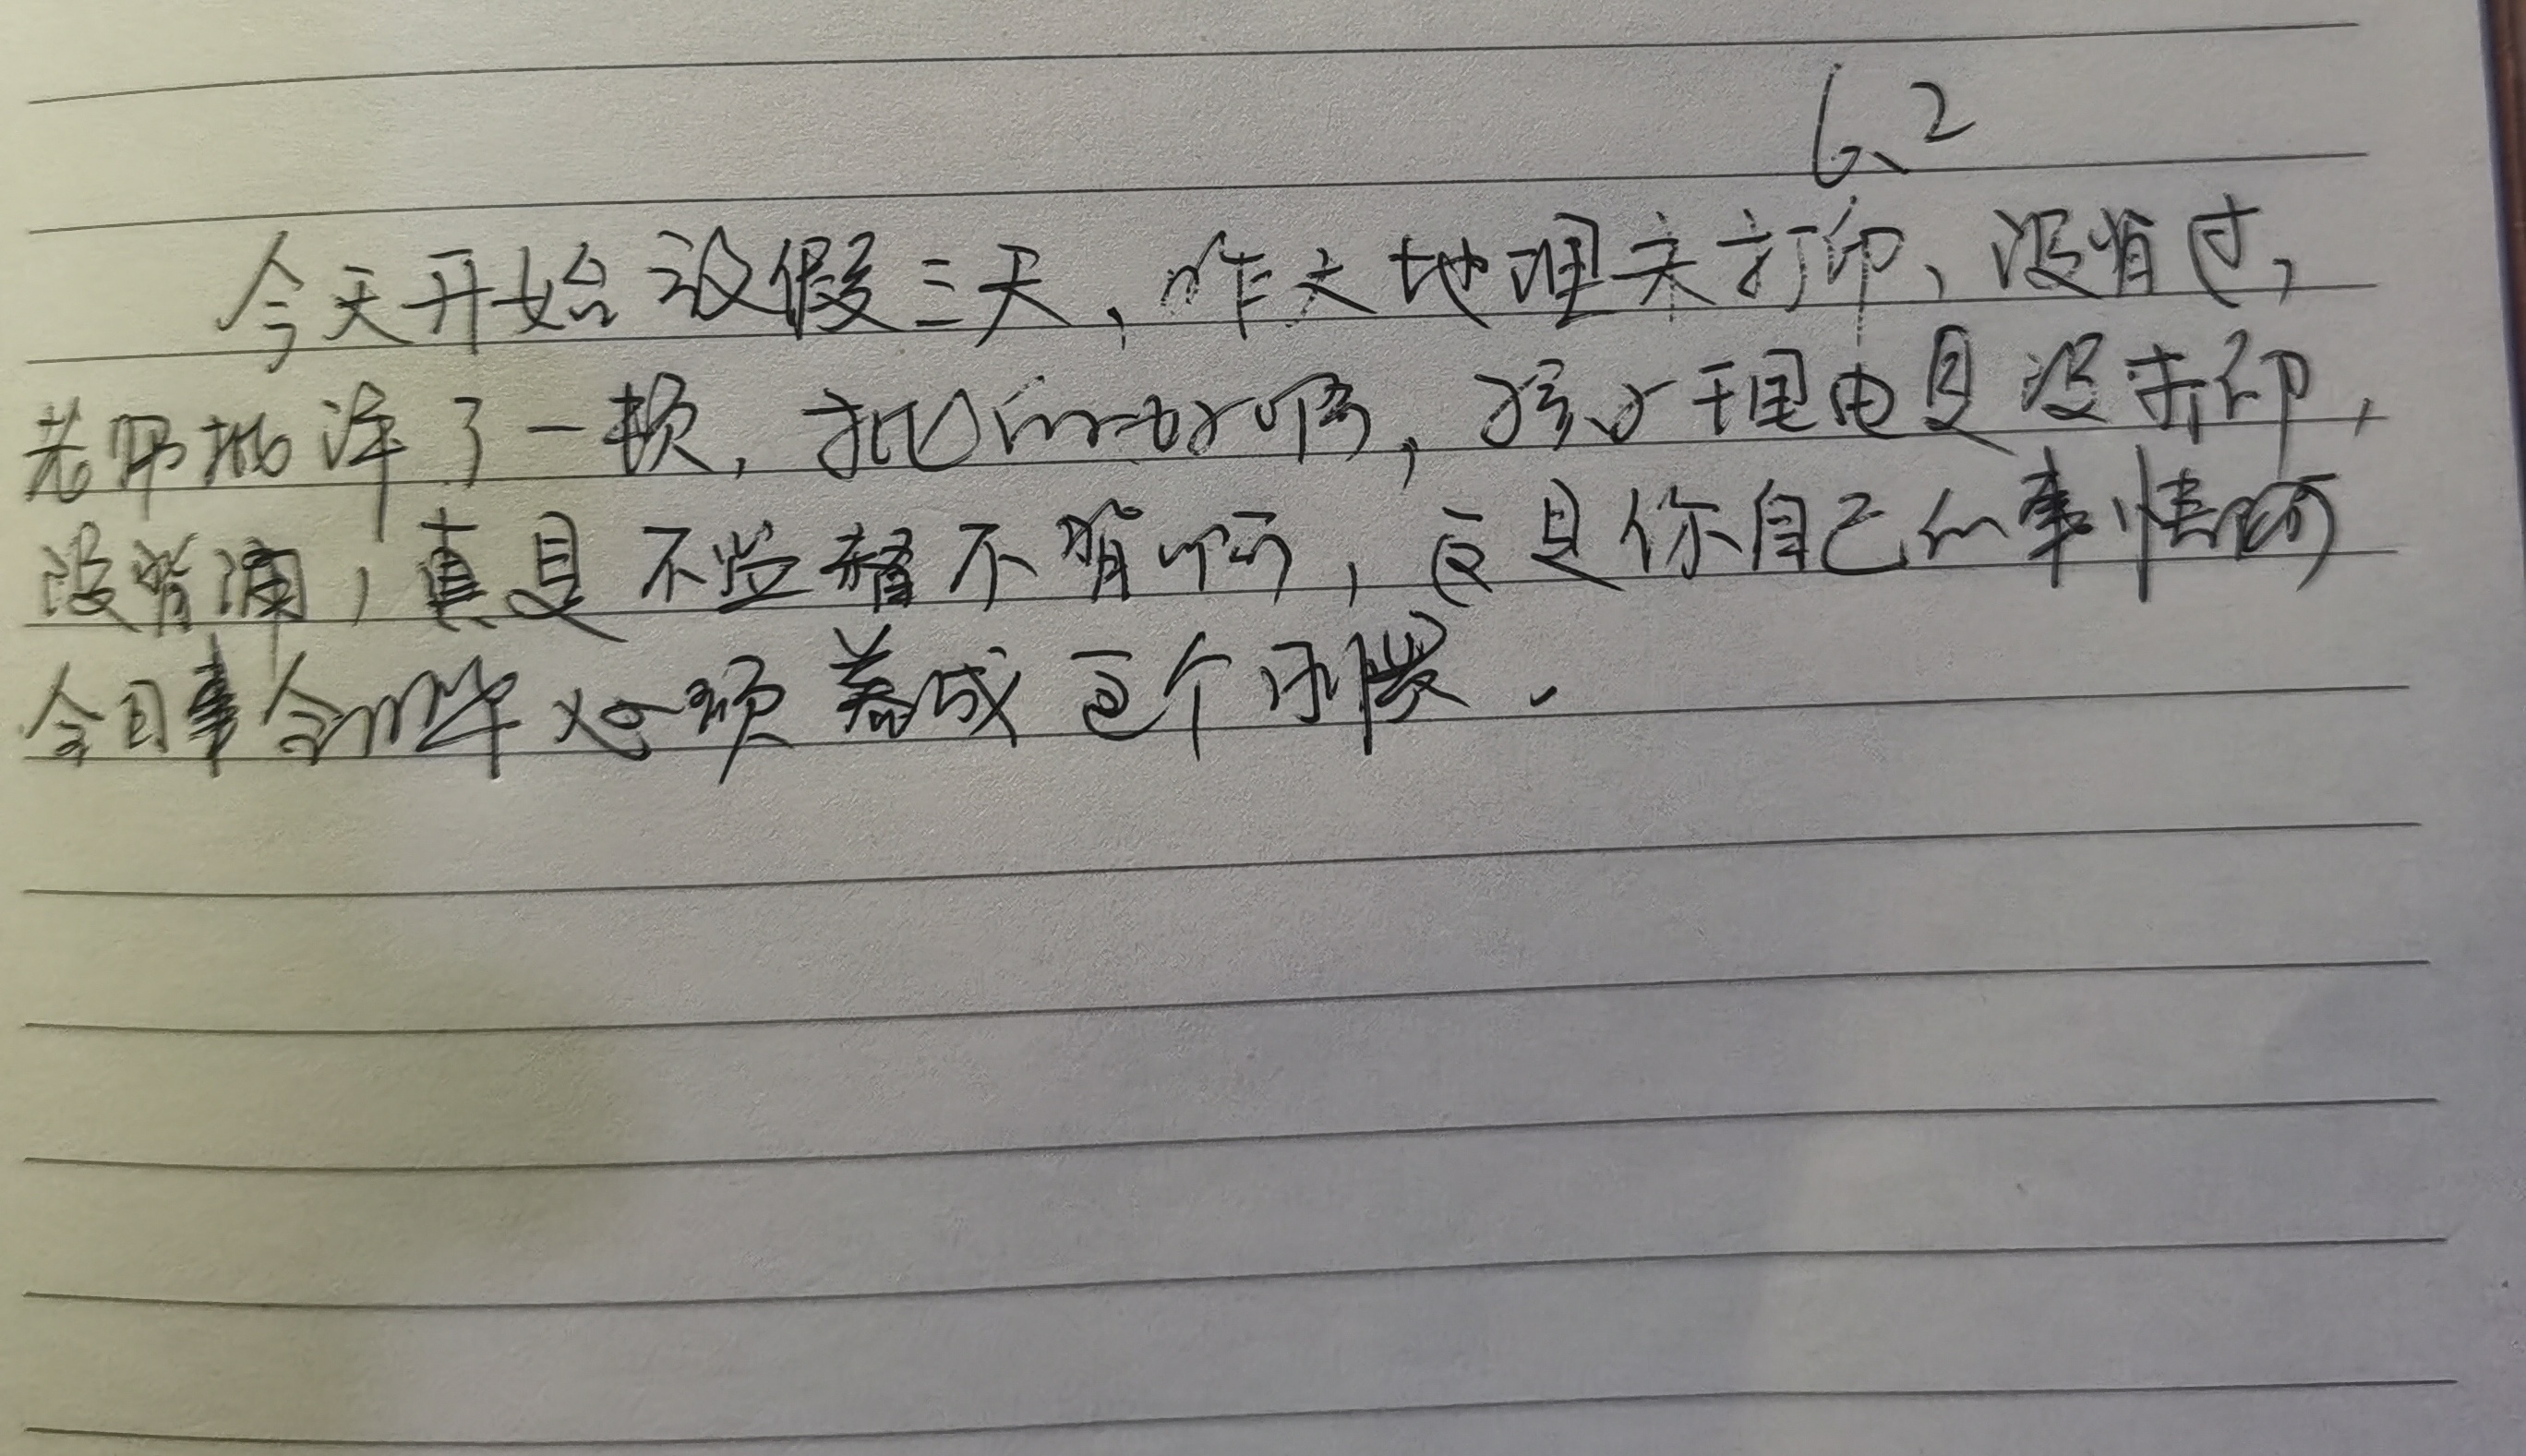 6.2
今天开始放假三天,昨天地理未打印、没有过,
老师批评了一顿,批的好啊,孩子理由是没打印,
没背诵,真是不监督不背啊,这是你自己的事情啊
今日事今日毕必须养成这个习惯.